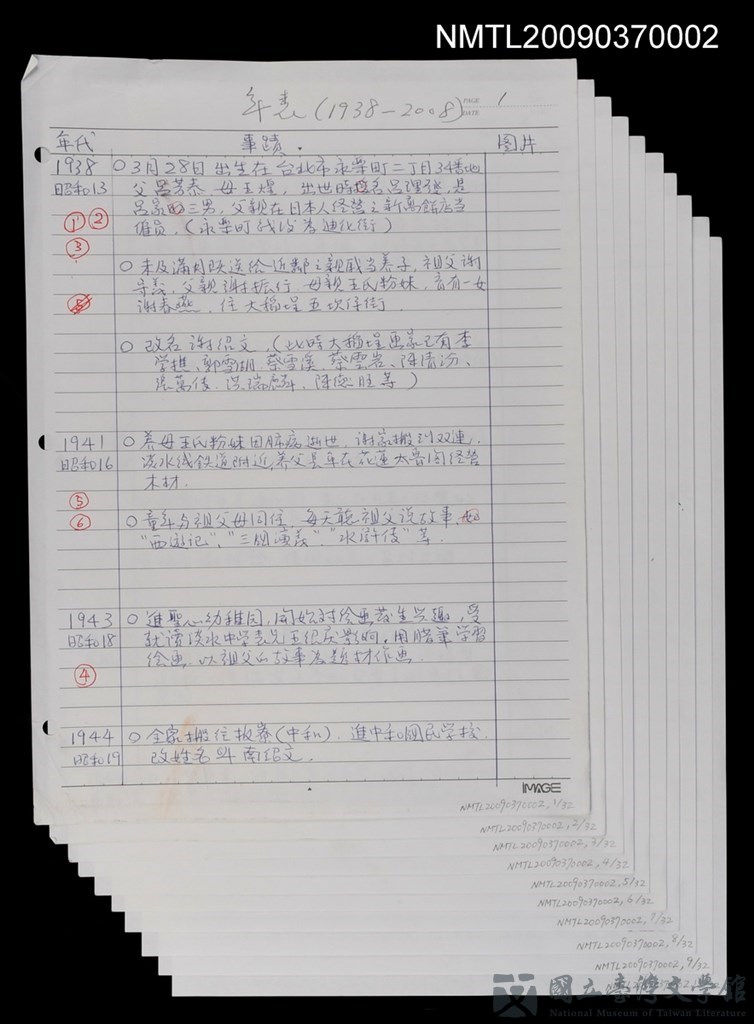 NMTL20090370002
年表(1938-2008)
PAGE 1
DATE
年代 事蹟. 图片
1938 ○3月28日出生在台北市永樂町二丁目34番地
昭和13 父呂芳泰 母王煌, 出世時名呂理强, 是
① ② 呂家三男, 父親在日本人经營之新高飯店当
雇員. (永樂町战後為迪化街)
③
○未及滿月即送给近鄰之親戚当养子, 祖父謝
父親謝振行, 母親王氏粉妹, 育有一女
⑤ 謝春燕, 住大稻埕五坎仔街
○改名謝绍文. (此時大稻埕画家已有李
学樵、郭雪湖、蔡雪溪、蔡雲岩、陳清汾、
洪瑞麟、陳德旺等)
1941 ○养母王氏粉妹因肺病逝世, 謝家搬到双連,
昭和16 淡水线鉄道附近, 养父長年在花蓮太魯閣经營
木材.
⑤
⑥ ○童年与祖父母同住, 每天聽祖父说故事, 如
"西遊记", "三國演義", "水滸传"等.
1943 ○進聖心幼稚园, 開始对绘画發生兴趣, 受
昭和18 就读淡水中学表兄王 影响, 用腊筆学習
绘画, 以祖父的故事為題材作画.
④
1944 ○全家搬住板寮(中和). 進中和國民学校.
昭和19 改姓名叫南绍文.
IMAGE
NMTL20090370002, 1/32
NMTL20090370002, 2/32
NMTL20090370002, 3/32
NMTL20090370002, 4/32
NMTL20090370002, 5/32
NMTL20090370002, 6/32
NMTL20090370002, 7/32
NMTL20090370002, 8/32
NMTL20090370002, 9/32
國立臺灣文學館
National Museum of Taiwan Literature